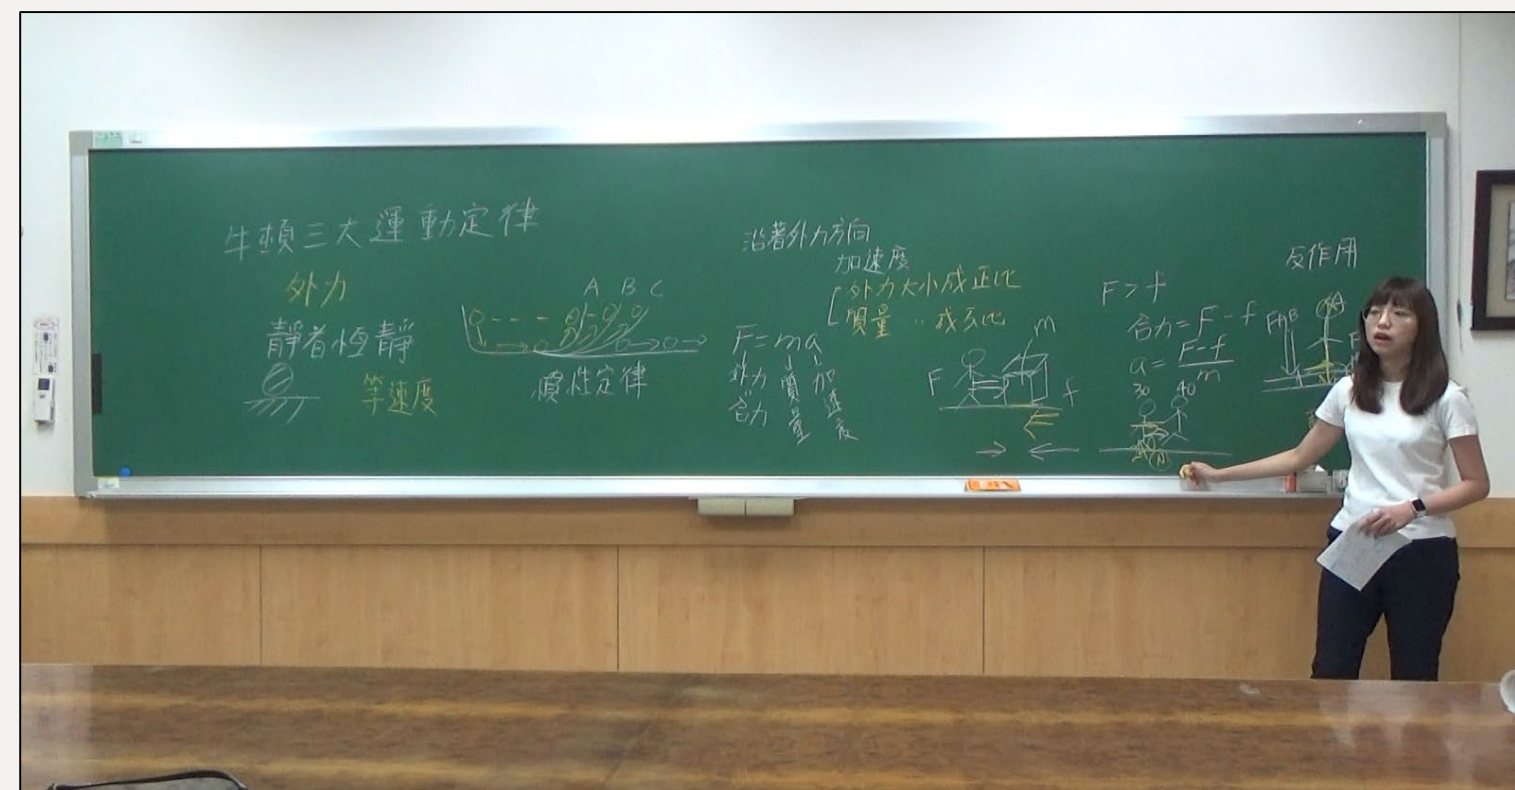 牛頓三大運動定律
外力
靜者恆靜
等速度
A B C
慣性定律
沿著外力方向
加速度
外力大小成正比
質量 〃 成反比
F=ma
外力
合力
質量
加速度
m
F
f
F>f
合力=F-f
a=F-f/m
30 40
反作用